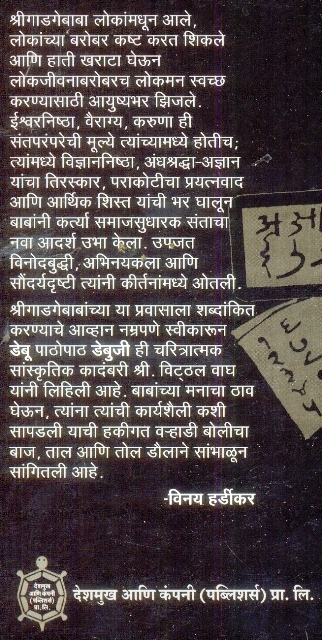 श्रीगाडगेबाबा लोकांमधून आले,
लोकांच्या बरोबर कष्ट करत शिकले
आणि हाती खराटा घेऊन
लोकजीवनाबरोबरच लोकमन स्वच्छ
करण्यासाठी आयुष्यभर झिजले.
ईश्वरनिष्ठा, वैराग्य, करुणा ही
संतपरंपरेची मूल्ये त्यांच्यामध्ये होतीच;
त्यांमध्ये विज्ञाननिष्ठा, अंधश्रद्धा-अज्ञान
यांचा तिरस्कार, पराकोटीचा प्रयत्नवाद
आणि आर्थिक शिस्त यांची भर घालून
बाबांनी कर्त्या समाजसुधारक संताचा
नवा आदर्श उभा केला. उपजत
विनोदबुद्धी, अभिनयकला आणि
सौंदर्यदृष्टी त्यांनी कीर्तनांमध्ये ओतली.
श्रीगाडगेबाबांच्या या प्रवासाला शब्दांकित
करण्याचे आव्हान नम्रपणे स्वीकारून
डेबू पाठोपाठ डेबुजी ही चरित्रात्मक
सांस्कृतिक कादंबरी श्री. विठ्ठल वाघ
यांनी लिहिली आहे. बाबांच्या मनाचा ठाव
घेऊन, त्यांना त्यांची कार्यशैली कशी
सापडली याची हकीगत वऱ्हाडी बोलीचा
बाज, ताल आणि तोल डौलाने सांभाळून
सांगितली आहे.
-विनय हर्डीकर
देशमुख
आणि कंपनी
(पब्लिशर्स)
प्रा. लि.
देशमुख आणि कंपनी (पब्लिशर्स) प्रा. लि.